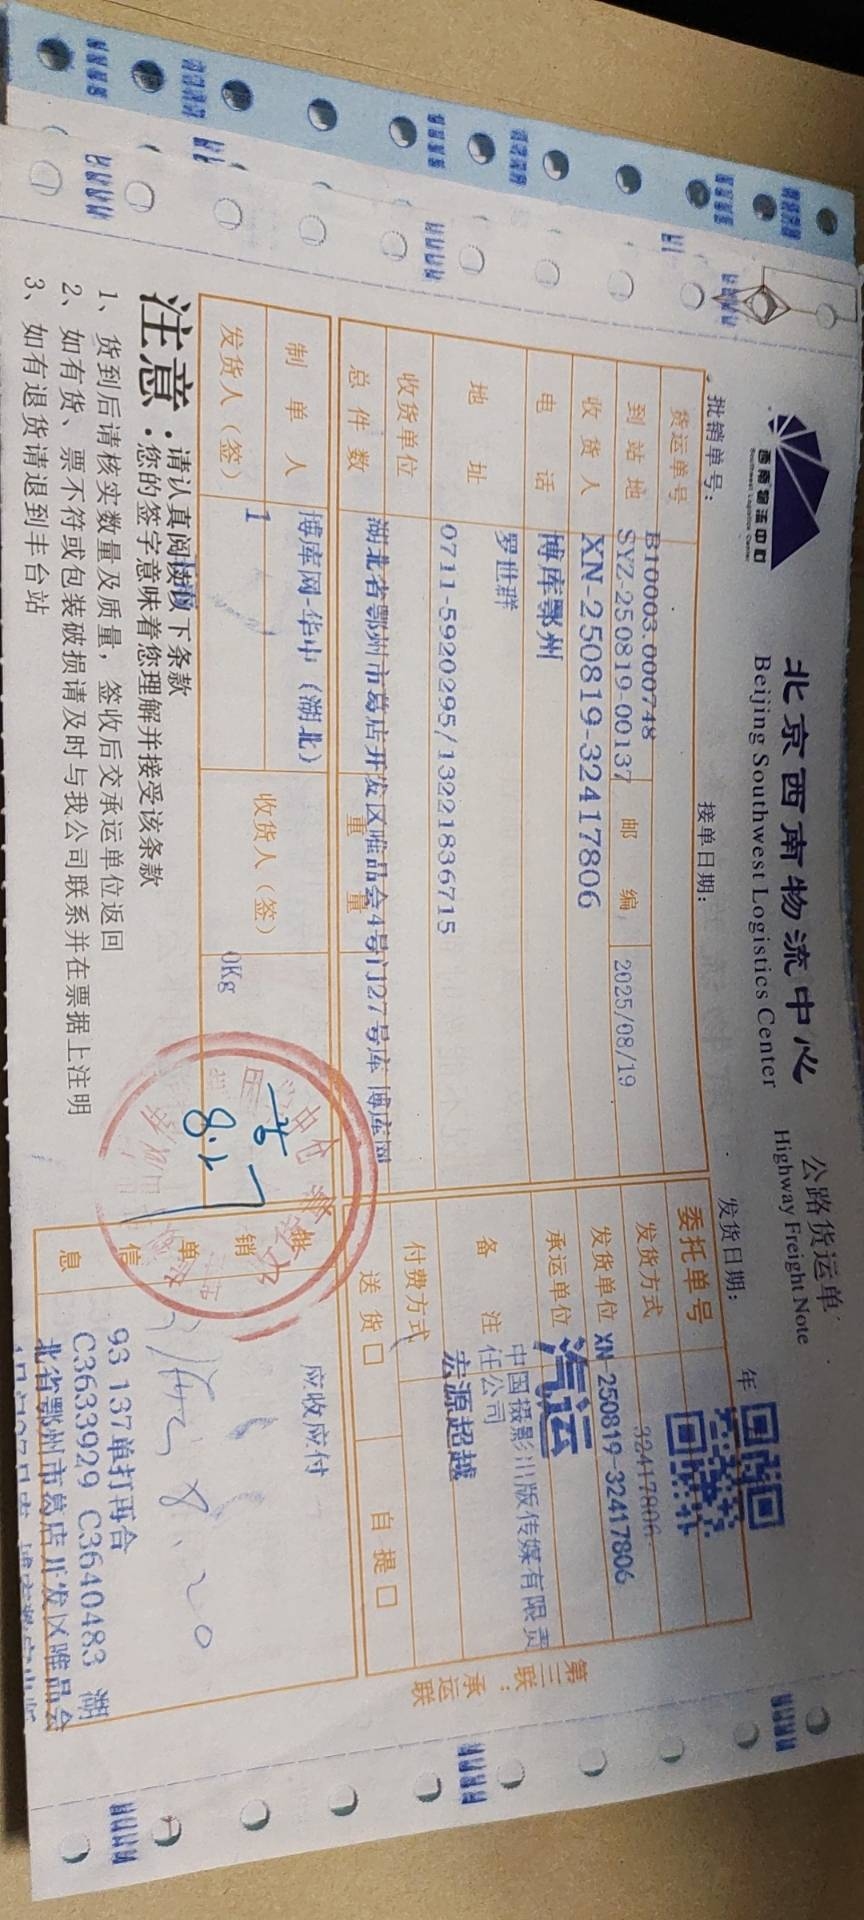 西南物流中心
Southwest Logistics Center
北京西南物流中心
Beijing Southwest Logistics Center
公路货运单
Highway Freight Note
批销单号：
接单日期：
发货日期：
年
B10003.000748
货运单号
SYZ-250819-00137
邮 编
2025/08/19
委托单号
32417806
到站地
XN-250819-32417806
发货方式
XN-250819-32417806
收货人
博库鄂州
发货单位
汽运
电 话
罗世群
承运单位
中国摄影出版传媒有限责
任公司
地 址
0711-5920295/13221836715
备 注
宏源超越
收货单位
湖北省鄂州市葛店开发区唯品会4号门27号库 博库网
付费方式
总件数
重 量
送 货 口
自 提 口
制单人
博库网-华中（湖北）
收货人（签）
应收应付
发货人（签）
1
0Kg
8.2
批销单信息
8.20
93 137单打再合
C3633929 C3640483 湖
北省鄂州市葛店开发区唯品会
注意：
请认真阅读以下条款
您的签字意味着您理解并接受该条款
1、货到后请核实数量及质量，签收后交承运单位返回
2、如有货、票不符或包装破损请及时与我公司联系并在票据上注明
3、如有退货请退到丰台站
第三联：
承运联